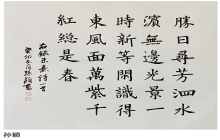 勝日尋芳泗水
濱無邊光景一
時新等閒識得
東風面萬紫千
紅總是春
右錄朱熹詩一首
癸卯 孫穎書
孙颖